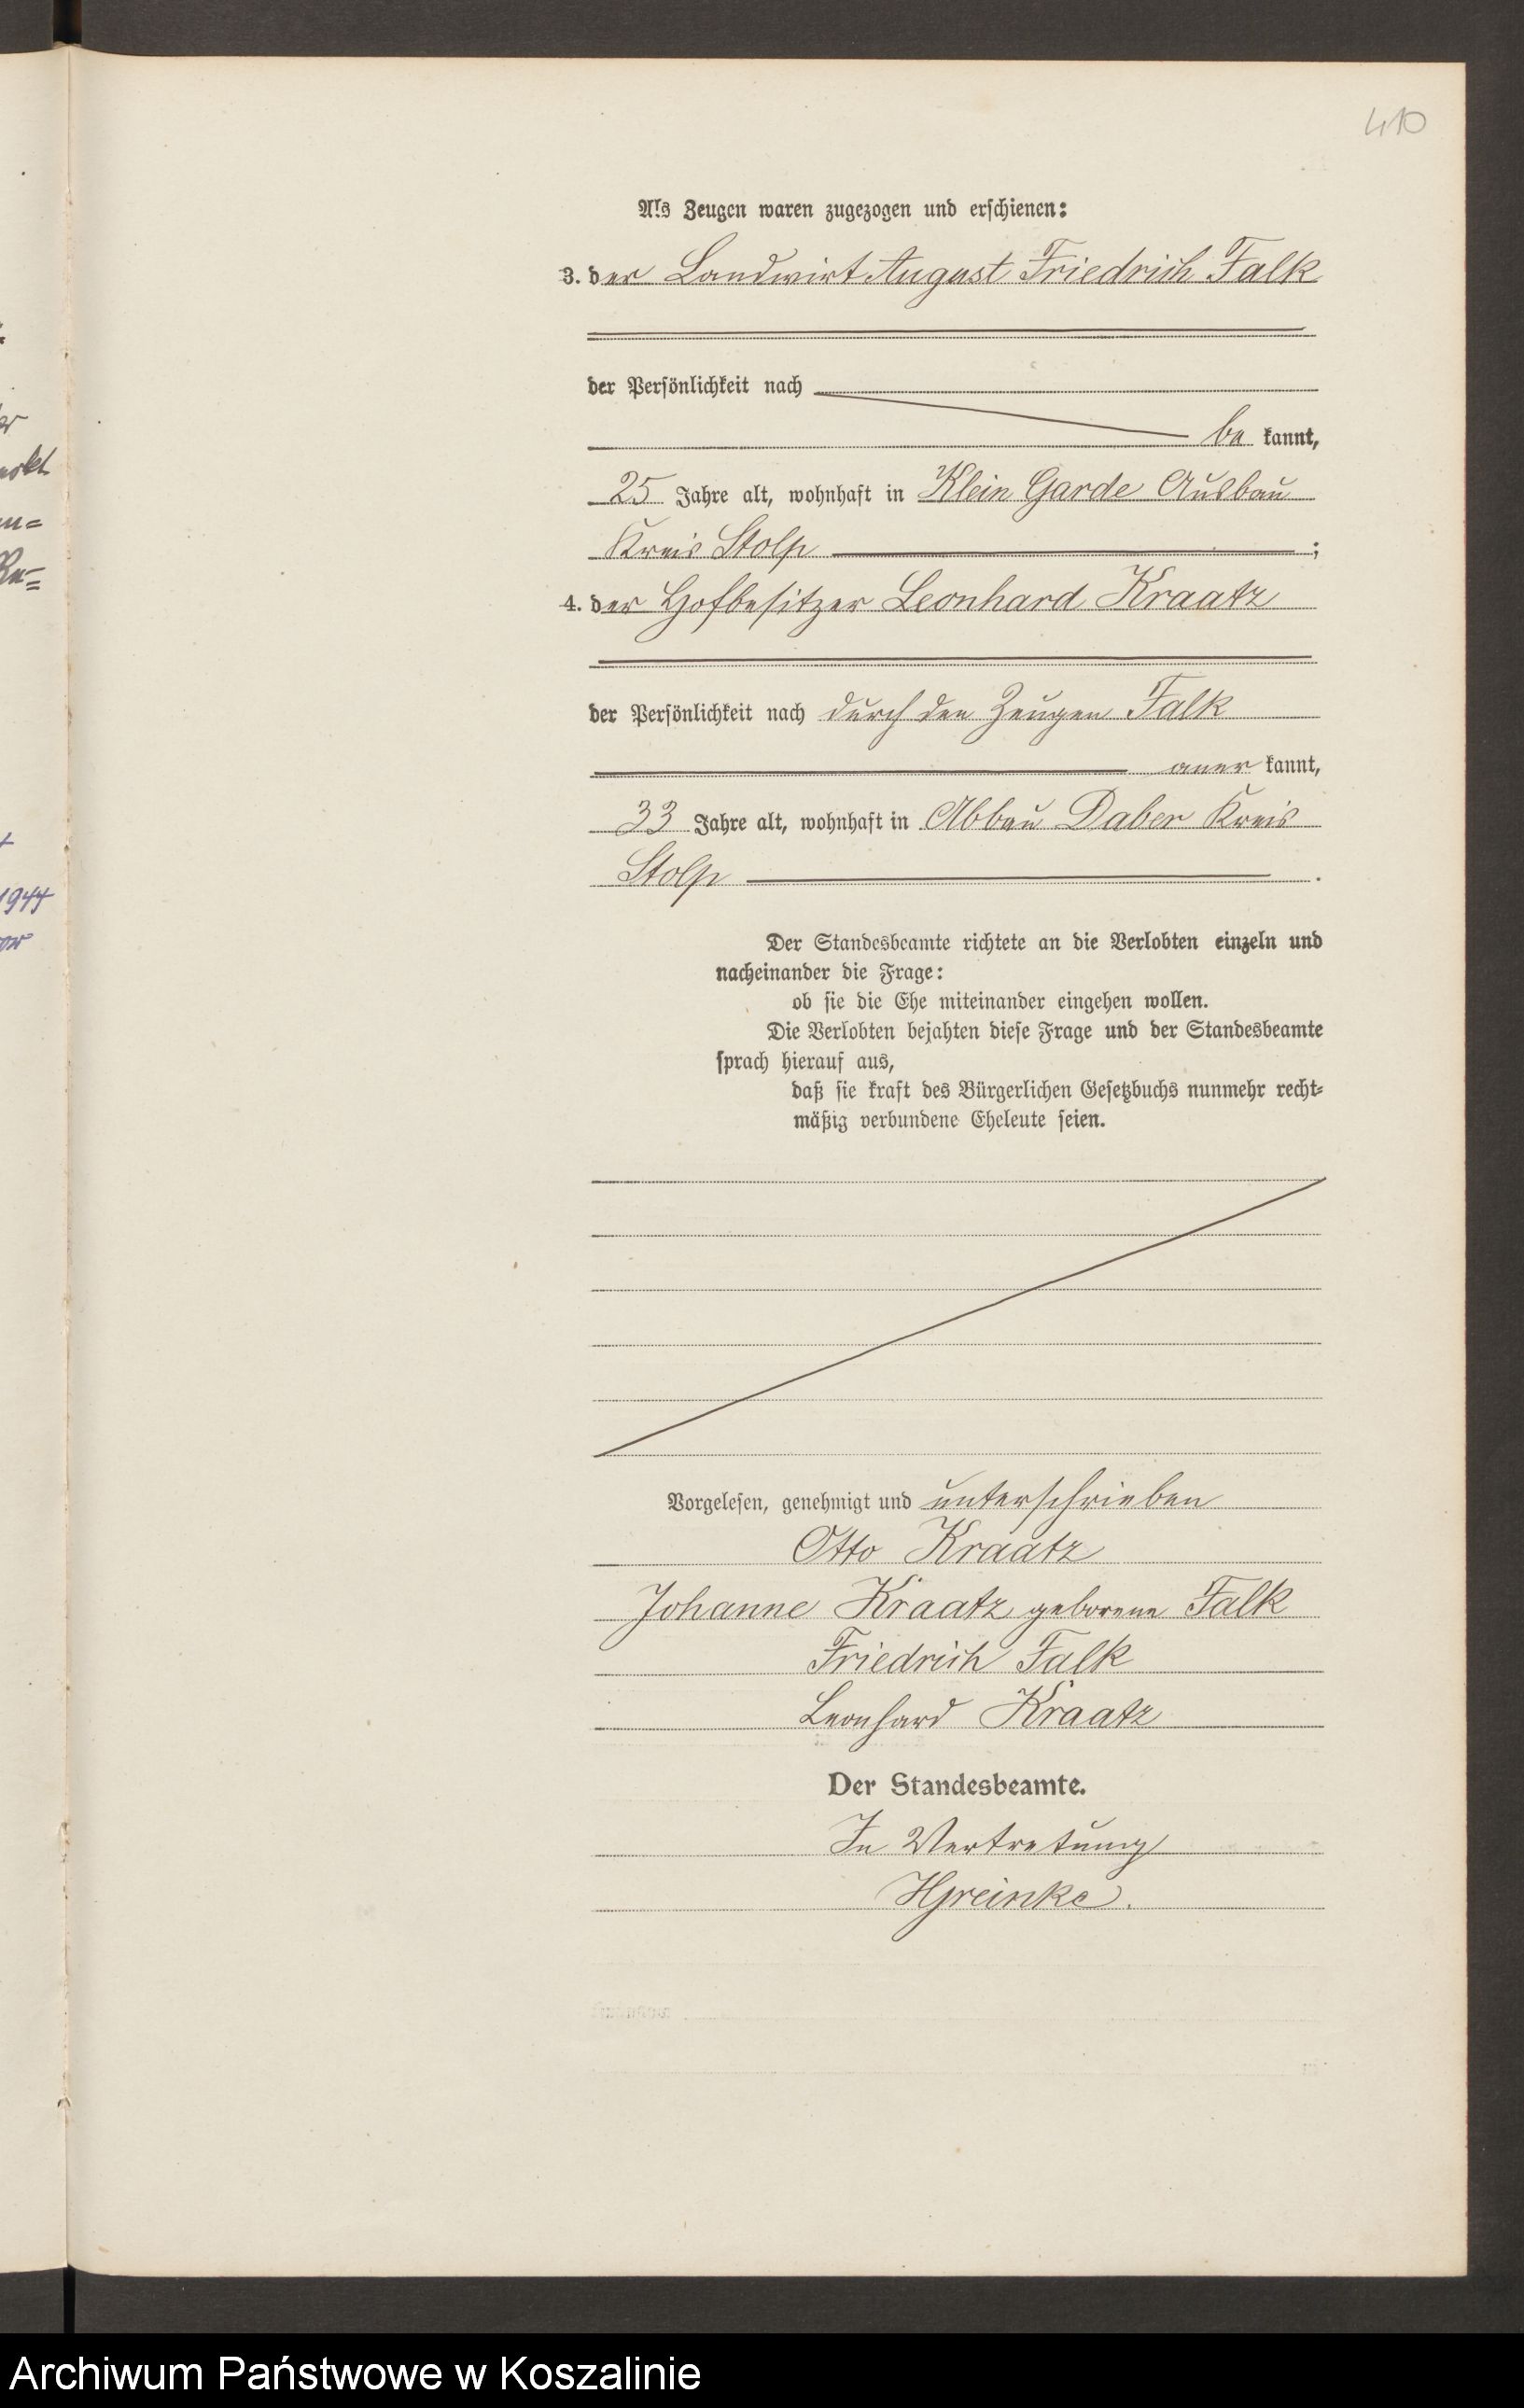 410
Als Zeugen waren zugezogen und erschienen:
3. der Landwirt August Friedrich Falk
der Persönlichkeit nach
be kannt,
25 Jahre alt, wohnhaft in Klein Garde Ausbau
Kreis Stolp ;
4. der Hofbesitzer Leonhard Kraatz
der Persönlichkeit nach durch den Zeugen Falk
aner kannt,
33 Jahre alt, wohnhaft in Abbau Daber Kreis
Stolp .
Der Standesbeamte richtete an die Verlobten einzeln und
nacheinander die Frage:
ob sie die Ehe miteinander eingehen wollen.
Die Verlobten bejahten diese Frage und der Standesbeamte
sprach hierauf aus,
daß sie kraft des Bürgerlichen Gesetzbuchs nunmehr recht-
mäßig verbundene Eheleute seien.
Vorgelesen, genehmigt und unterschrieben
Otto Kraatz
Johanne Kraatz geborene Falk
Friedrich Falk
Leonhard Kraatz
Der Standesbeamte.
In Vertretung
1944
Archiwum Państwowe w Koszalinie